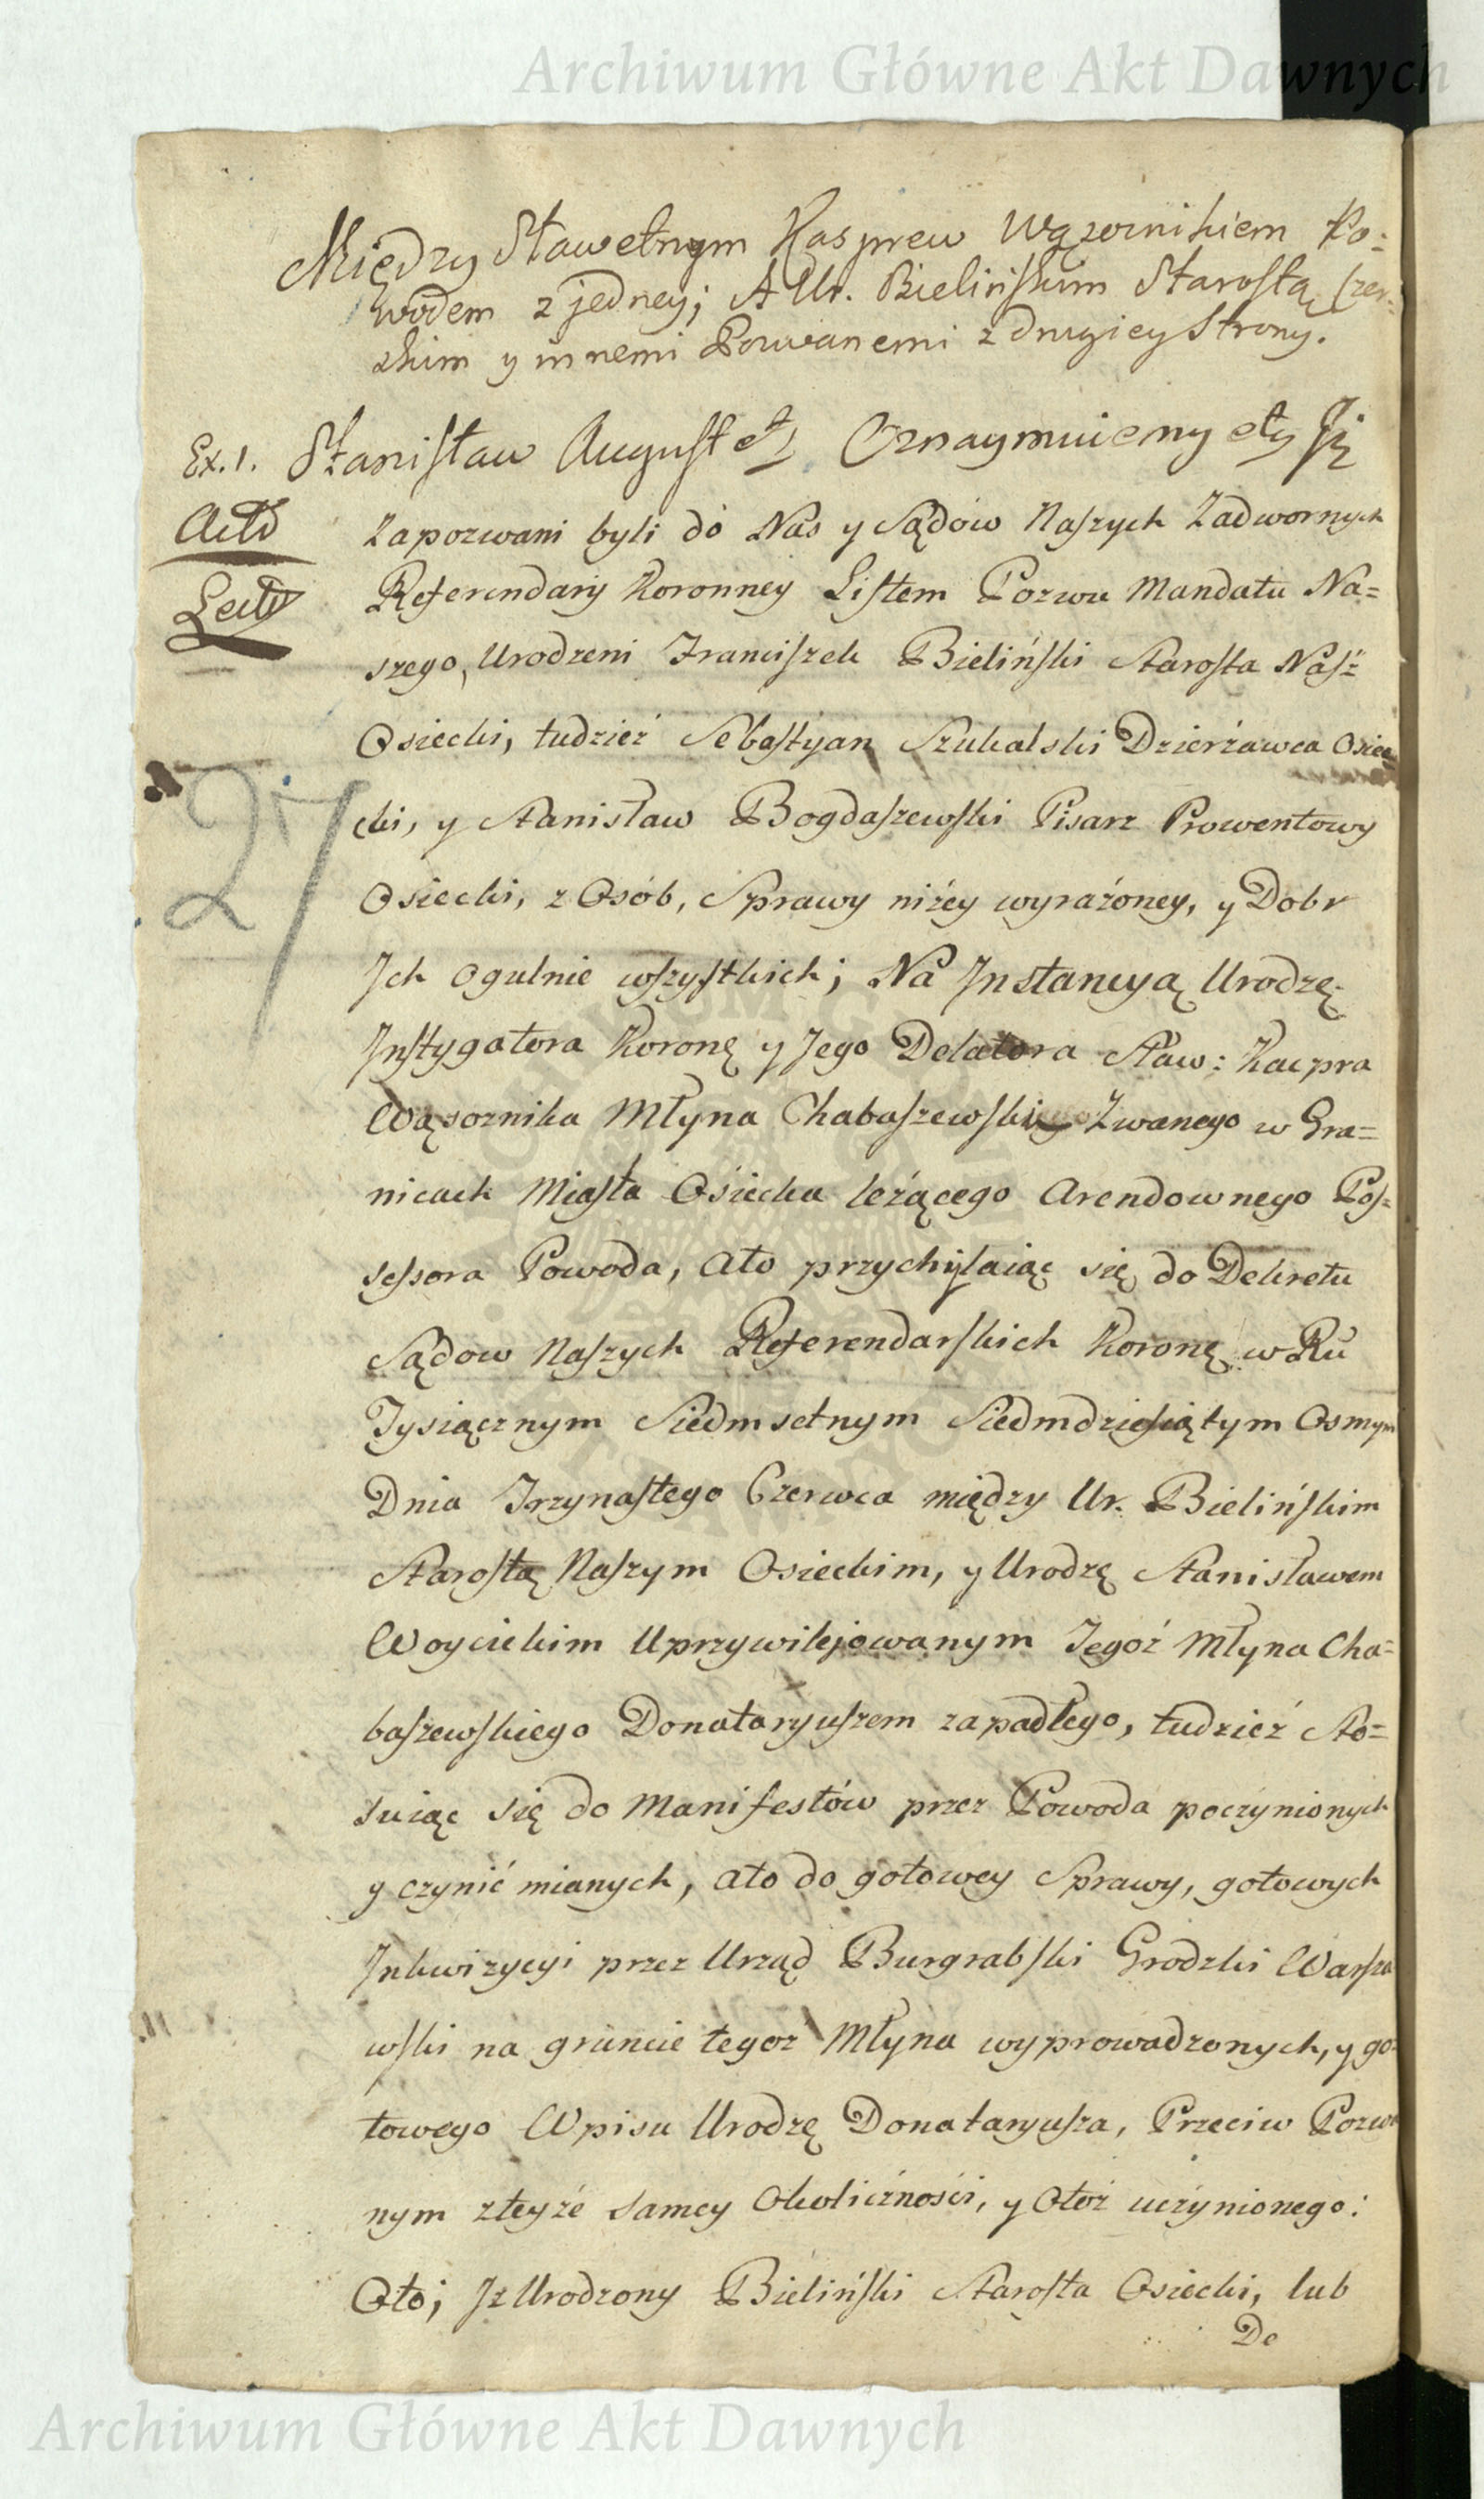 Archiwum Główne Akt Dawnych
Między Sławetnym Kasprem Wązornikiem Po=
wodem z jedney; A Ur. Bielińskim Starostą Czer=
skim y innemi Pozwanemi z drugiey Strony.
Ex. 1. Stanisław August etz Oznaymuiemy etz Jż
Actò
Zapozwani byli do Nas y Sądow Naszych Zadwornych
Lecty
Referendary Koronney Listem Pozwu Mandatu Na=
szego, Urodzeni Franciszek Bieliński Starosta Nasż
Osiecki, tudzież Sebastyan Szukalski Dzierżawca Osiec
27
cki, y Stanisław Bogdaszewski Pisarz Prowentowy
Osiecki, z Osób, Sprawy niżey wyrażoney, y Dobr
Jch ogulnie wszystkich; Na Jnstancyą Urodzę.
Jnstygatora Koronę y Jego Delatora Sław: Kacpra
Wąsornika Młyna Chabaszewski Zwanego w Gra=
nicach Miasta Osiecka leżącego Arendownego Pos=
sessora Powoda, Ato przychylaiąc się do Dekretu
Sądow Naszych Referendarskich Koronę w Ru
Tysiącznym Siedmsetnym Siedmdziesiątym Osmym
Dnia Trzynastego Czerwca między Ur. Bielińskim
Starostą Naszym Osieckim, y Urodzę Stanisławem
Woycickim Uprzywilejowanym Tegoż Młyna Cha=
baszewskiego Donataryuszem zapadłego, tudzież Sto=
suiąc się do Manifestów przez Powoda poczynionych
y czynić mianych, ato do gotowey Sprawy, gotowych
Jnkwizycyi przez Urząd Burgrabski Grodzki Warsza
wski na gruncie tegoz Młyna wyprowadzonych, y go=
towego Wpisu Urodzę Donataryusza, Przeciw Pozwa
nym zteyże samey Okoliczności, y Otoż uczynionego:
Oto; Jż Urodzony Bieliński Starosta Osiecki, lub
De
Archiwum Główne Akt Dawnych